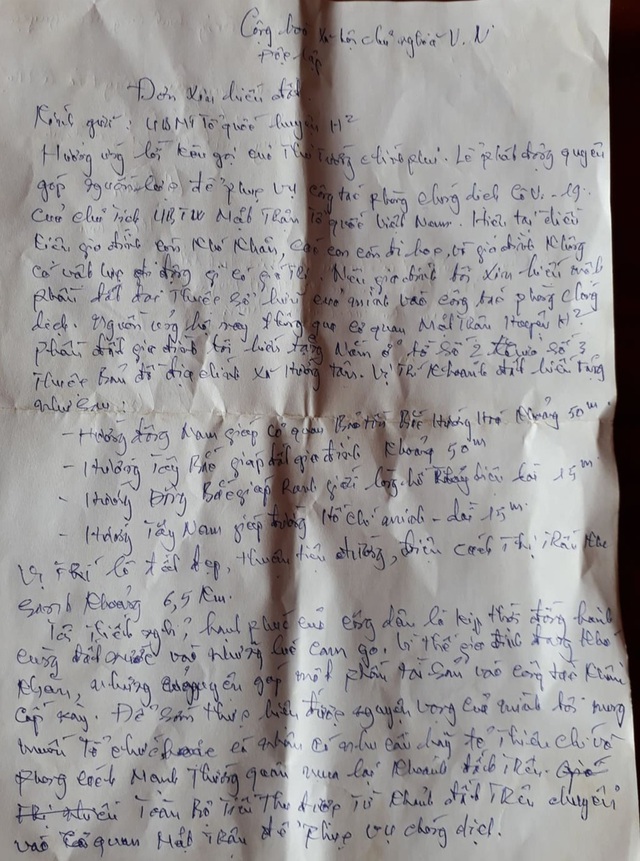 Cộng hòa xã hội chủ nghĩa V.N
Độc lập
Đơn xin hiến đất.
Kính gửi: UBMT Tổ quốc huyện H²
Hưởng ứng lời kêu gọi của Thủ tướng chính phủ. Lễ phát động quyên
góp nguồn lực để phục vụ công tác phòng chống dịch Cô Vi-19.
Của chủ tịch UBTW Mặt Trận Tổ quốc Việt Nam. Hiện tại điều
kiện gia đình còn khó khăn, các con còn đi học, vì gia đình không
có vật lực gì có giá trị. Nên gia đình tôi xin hiến một
phần đất đai thuộc sở hữu của mình vào công tác phòng chống
dịch. Nguồn ủng hộ này thông qua cơ quan Mặt trận Huyện H²
Phần đất gia đình tôi hiến tặng nằm ở tờ số 2 thửa số 3
thuộc bản đồ địa chính xã Hướng Tân. Vị trí khoanh đất hiến tặng
như sau:
- Hướng đông Nam giáp cơ quan Bảo tồn Bắc Hướng Hoá khoảng 50m.
- Hướng Tây Bắc giáp đất gia đình khoảng 50m
- Hướng Đông Bắc giáp Ranh giới lòng hồ thủy điện dài 15m.
- Hướng Tây Nam giáp đường Hồ Chí Minh - dài 15m.
Vị trí lô đất đẹp, thuận tiện đường, điện cách Thị Trấn Khe
Sanh khoảng 6,5 Km.
Tôi thiết nghĩ, hạnh phúc của công dân là kịp thời đồng hành
cùng đất nước vào những lúc cam go. Vì thế gia đình đang khó
khăn, nhưng nguyện góp một phần tài sản vào công tác khẩn
cấp này. Để sớm thực hiện được nguyện vọng của mình tôi mong
muốn tổ chức hoặc cá nhân có nhu cầu hãy từ thiện chí và
phong cách Mạnh Thường quân mua lại khoanh đất trên.
Toàn Bộ Tiền Thu được Từ khoanh đất trên chuyển
vào cơ quan Mặt Trận để phục vụ chống dịch.